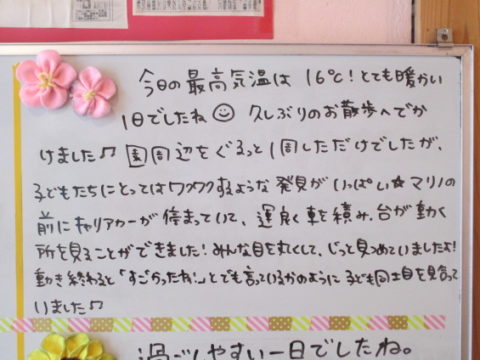 今日の最高気温は 16℃！とても暖かい
1日でしたね☺ 久しぶりのお散歩へでか
けました♫ 園周辺をぐるっと1周しただけでしたが、
子どもたちにとってはワクワクするような発見がいっぱい★マリノの
前にキャリアカーが停まっていて、運良く車を積み、台が動く
所を見ることができました！みんな目を丸くして、じっと見つめていましたよ！
動き終わると「すごかったね！」とでも言っているかのように子ども同士目を見合って
いました♫
過ごしやすい一日でしたね。